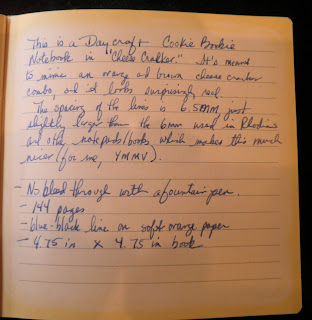 This is a Daycraft Cookie Bookie
Notebook in "Cheese Cracker." It's meant
to mimic an orange and brown cheese cracker
combo, and it looks surprisingly real.
The spacing of the lines is 6.5mm, just
slightly larger than the 6mm used in Rhodia
and other notepads/books, which makes this much
nicer (for me, YMMV).
- No bleed through with a fountain pen.
- 144 pages
- blue-black line on soft orange paper
- 4.75 in x 4.75 in book